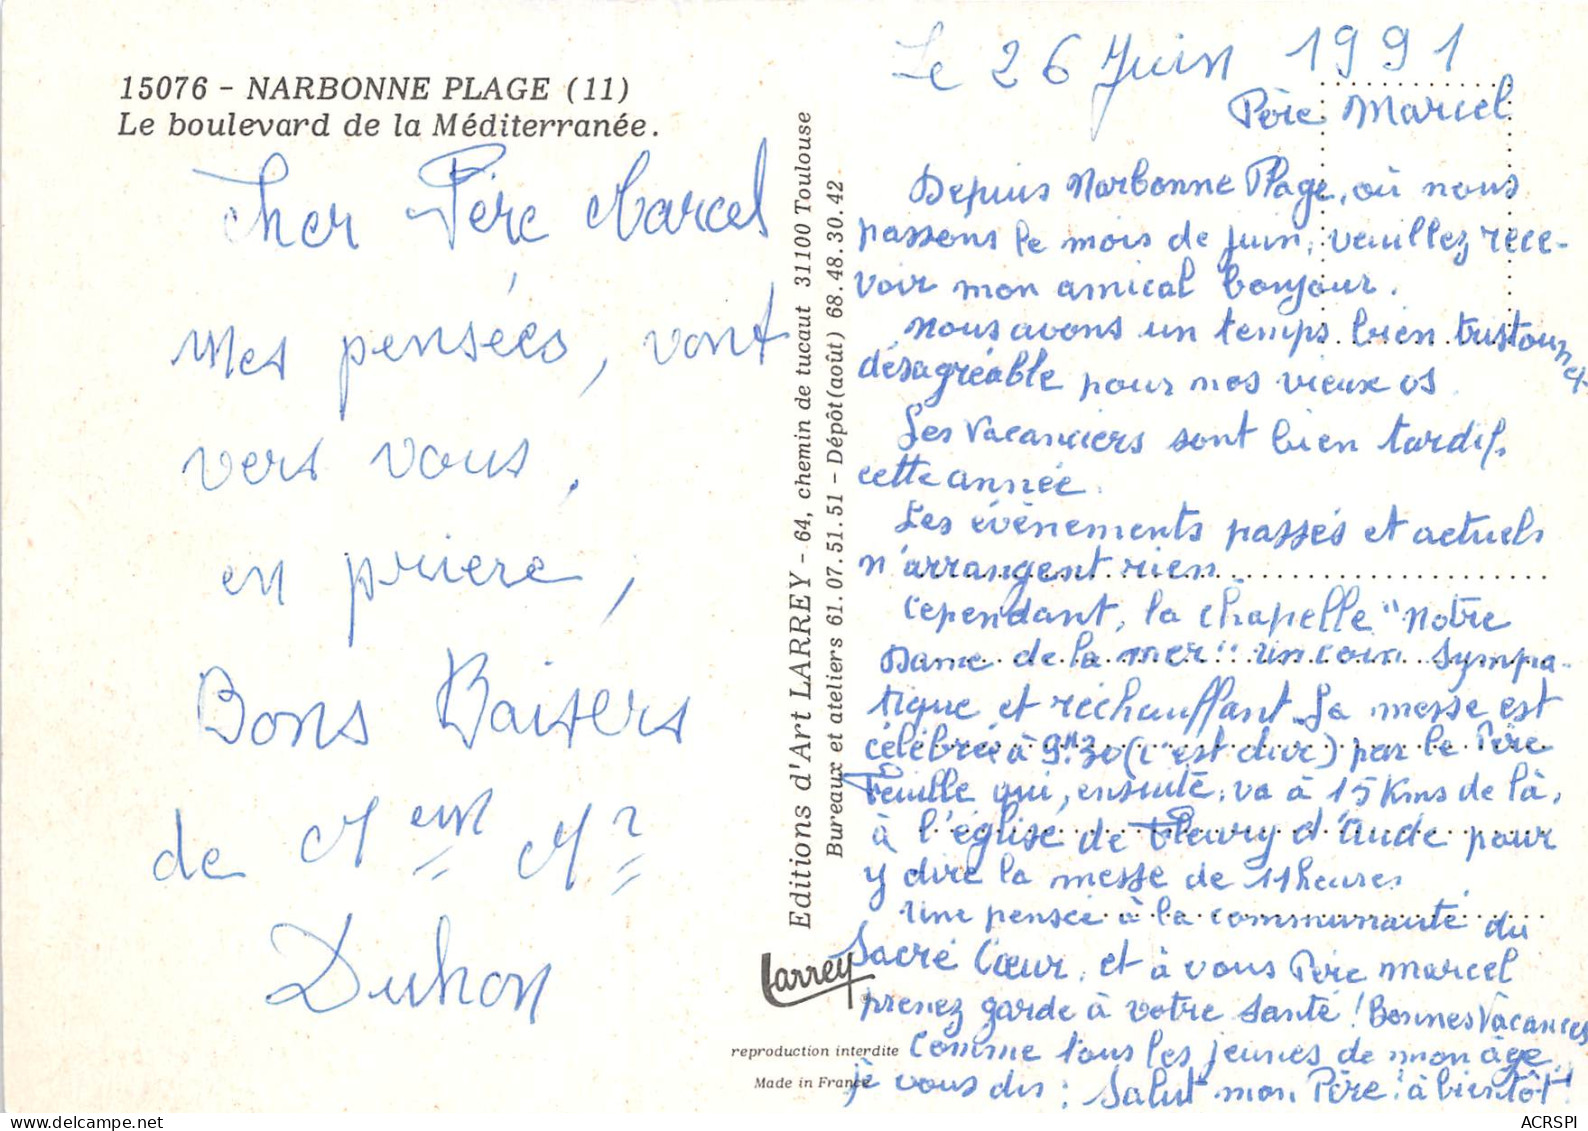 15076 - NARBONNE PLAGE (11)
Le boulevard de la Méditerranée.
Cher Père Marcel
Mes pensées, vont
vers vous,
en prière,
Bons Baisers
de Mr et Mme
Duhon
Editions d'Art LARREY - 64, chemin de tucaut 31100 Toulouse
Bureaux et ateliers 61.07.51.51 - Dépôt (août) 68.48.30.42
Larrey
reproduction interdite
Made in France
Le 26 Juin 1991
Père Marcel
Depuis Narbonne Plage, où nous
passons le mois de juin, veuillez rece-
voir mon amical bonjour.
Nous avons un temps bien tristounet
désagréable pour nos vieux os
Les vacanciers sont bien tardifs
cette année.
Les évènements passés et actuels
n'arrangent rien
Cependant, la chapelle "Notre
Dame de la mer" un coin sympa-
tique et réchauffant. La messe est
célébrée à 9h30 (c'est dur) par le Père
Feuille qui, ensuite, va à 15 Kms de là,
à l'église de Fleury d'Aude pour
y dire la messe de 11 heures.
Une pensée à la communauté du
Sacré Cœur, et à vous Père Marcel
prenez garde à votre santé ! Bonnes Vacances
Comme tous les jeunes de mon âge
je vous dis : Salut mon Père ! à bientôt !
ACRSPI